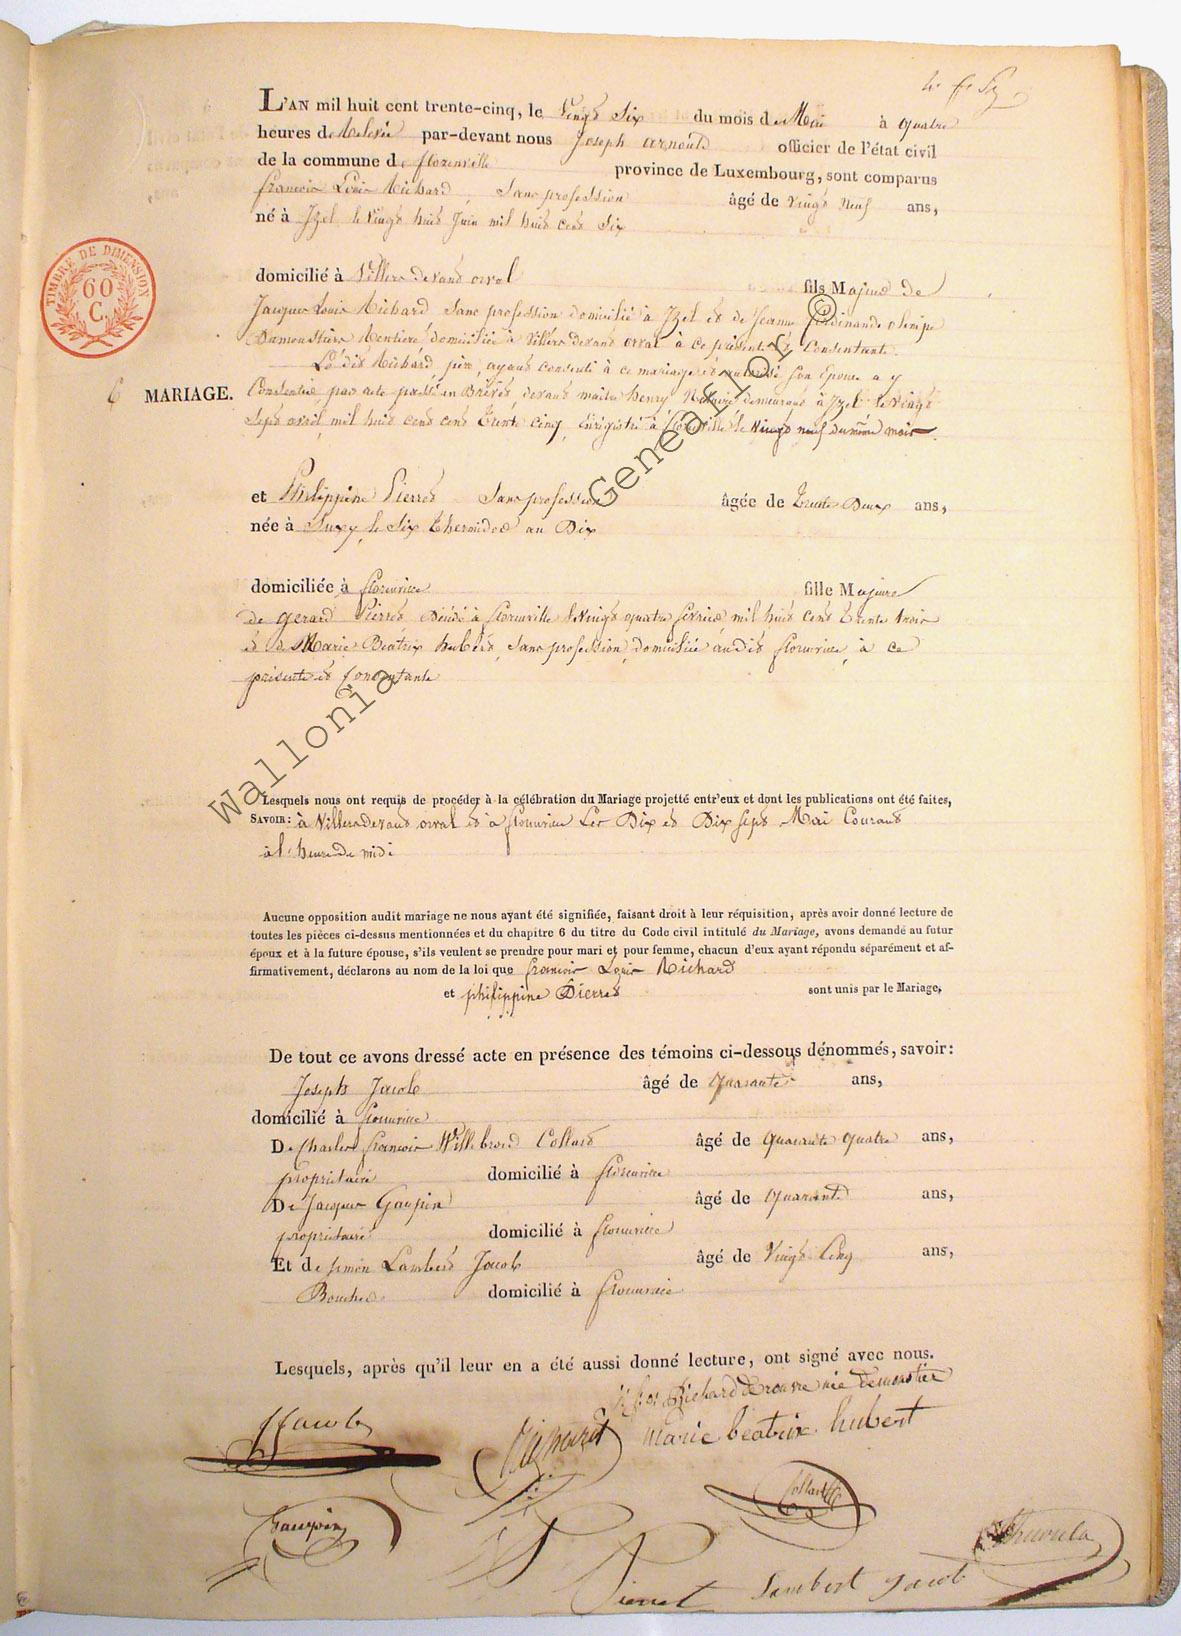 L'AN mil huit cent trente-cinq, le Vingt Six du mois de Mai à quatre
heures de Relevée par-devant nous Joseph arnould officier de l'état civil
de la commune de florenville province de Luxembourg, sont comparus
françois Louis Richard, Sans profession âgé de vingt neuf ans,
né à Izel le vingt huit Juin mil huit cent Six
domicilié à Villers devant orval fils Majeur de
Jacques Louis Richard Sans profession domicilié à Izel et de Jeanne ferdinande olimpe
Dumonstier Rentiere domiciliée à Villers devant orval à ce présente et Consentante.
Le dit Richard, père, ayant consenti à ce mariage et autorisé son Epouse a y
MARIAGE.
6
Consentir, par acte passé en Brévet devant maître henry Notaire demeurant à Izel le vingt
Sept avril mil huit cent cent Trente cinq, Enrégistré à florenville le vingt neuf du même mois.
et Philippine Pierret Sans profession âgée de Trente Deux ans,
née à Suxy, le Six Thermidor an Dix
domiciliée à florenville fille Majeure
de gerard Pierret Décédé à florenville le vingt quatre fevrier mil huit cent trente trois
et de Marie Beatrix hubert, Sans profession, domiciliée audit florenville, à ce
présente et Consentante
Lesquels nous ont requis de procéder à la célébration du Mariage projetté entr'eux et dont les publications ont été faites,
SAVOIR: à Villers devant orval et à florenville Les Dix et Dix Sept Mai Courant
à l'heure de midi
Aucune opposition audit mariage ne nous ayant été signifiée, faisant droit à leur réquisition, après avoir donné lecture de
toutes les pièces ci-dessus mentionnées et du chapitre 6 du titre du Code civil intitulé du Mariage, avons demandé au futur
époux et à la future épouse, s'ils veulent se prendre pour mari et pour femme, chacun d'eux ayant répondu séparément et af-
firmativement, déclarons au nom de la loi que françois Louis Richard
et philippine Pierret sont unis par le Mariage,
De tout ce avons dressé acte en présence des témoins ci-dessous dénommés, savoir:
Joseph Jacob âgé de quarante ans,
domicilié à florenville
De Charles françois Willebrord Collard âgé de quarante quatre ans,
propriétaire domicilié à florenville
De Jacques Gaupin âgé de quarante ans,
propriétaire domicilié à florenville
Et de Simon Lambert Jacob âgé de vingt Cinq ans,
Boucher domicilié à florenville
Lesquels, après qu'il leur en a été aussi donné lecture, ont signé avec nous.
Richard
JJacob
marie beatrix hubert
Collard
Gaupin
Pierret Lambert Jacob
TIMBRE DE DIMENSION
60
C.
Wallonia Geneaflor ©